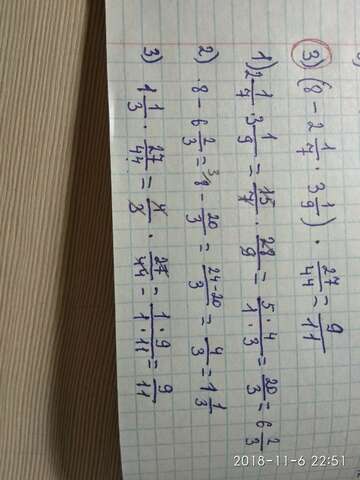 3) (8 - 2 1/7 · 3 1/9) · 27/44 = 9/11
1) 2 1/7 · 3 1/9 = 15/7 · 28/9 = 5·4/1·3 = 20/3 = 6 2/3
2) 8 - 6 2/3 = 3\8 - 20/3 = 24-20/3 = 4/3 = 1 1/3
3) 1 1/3 · 27/44 = 4/3 · 27/44 = 1·9/1·11 = 9/11
2018-11-6 22:51